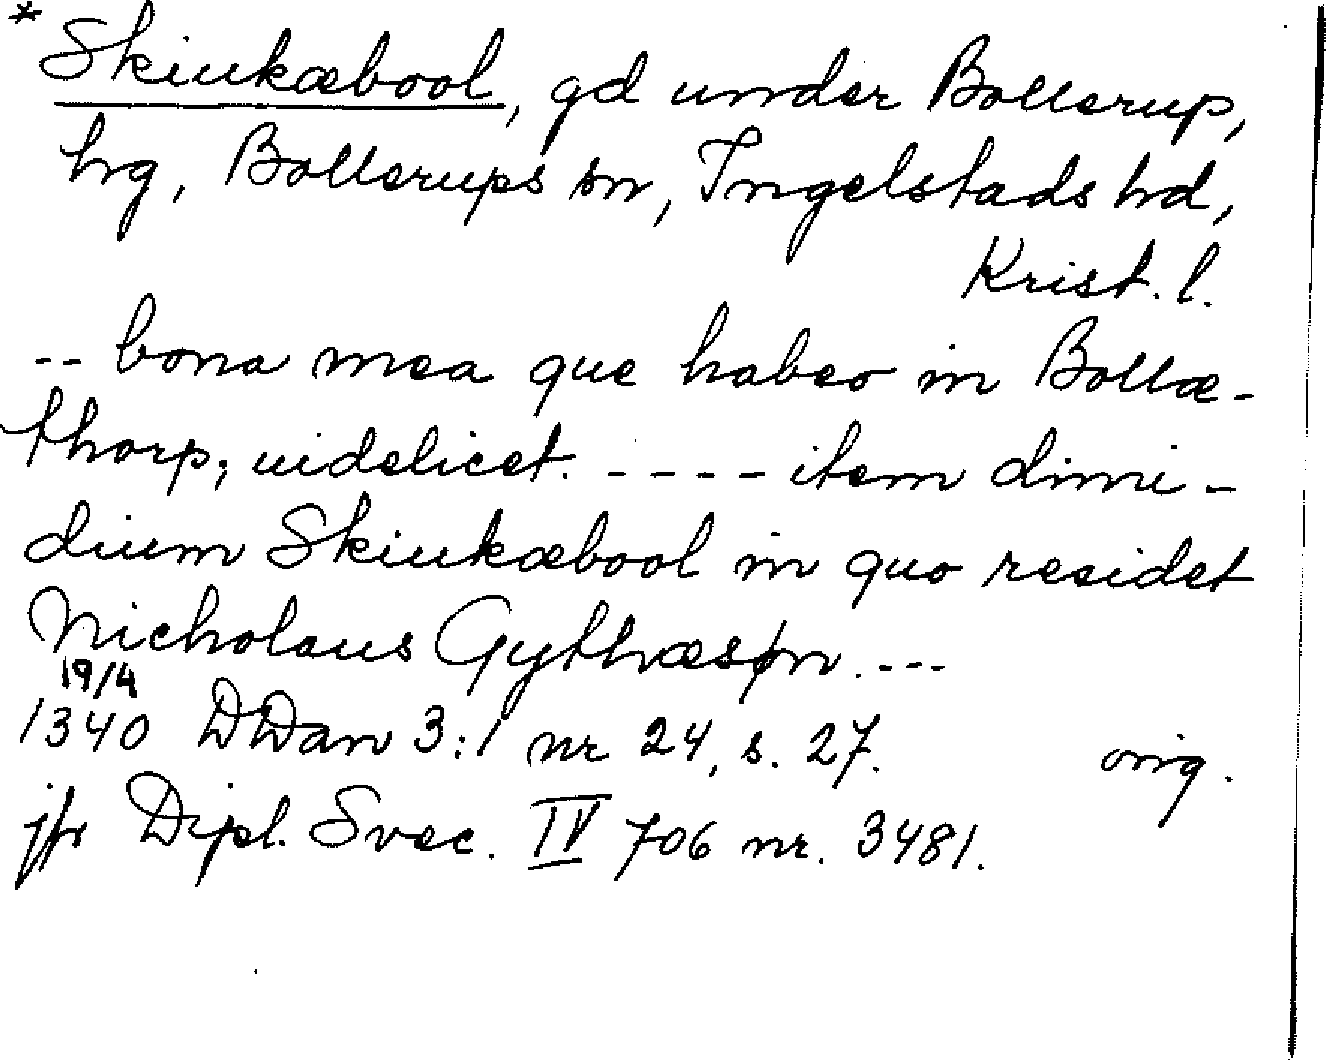 * Skiukæbool, gd under Bollerup,
hg, Bollerups sn, Ingelstads hd,
Krist. l.
-- bona mea que habeo in Bollæ-
thorp; uidelicet. ---- item dimi-
dium Skiukæbool in quo residet
Nicholaus Gythæsøn. ---
19/4
1340 DDan 3:1 nr 24, s. 27. orig.
jfr Dipl. Svec. IV 706 nr. 3481.